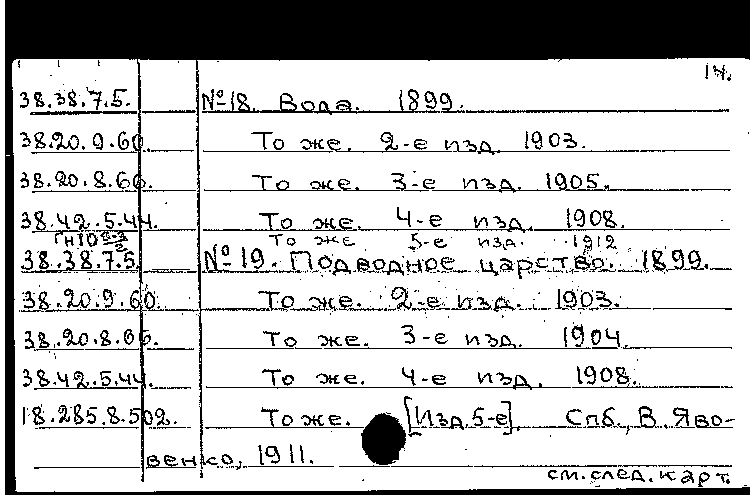 14.
38.38.7.5. №18. Вода. 1899.
38.20.9.60. То же. 2-е изд. 1903.
38.20.8.66. То же. 3-е изд. 1905.
38.42.5.44. То же. 4-е изд. 1908.
То же 5-е изд. 1912
38.38.7.5. №19. Подводное царство. 1899.
38.20.9.60. То же. 2-е изд. 1903.
38.20.8.66. То же. 3-е изд. 1904.
38.42.5.44. То же. 4-е изд. 1908.
18.285.8.502. То же. [Изд. 5-е]. Спб., В. Яво-
венко, 1911.
см. след. карт.